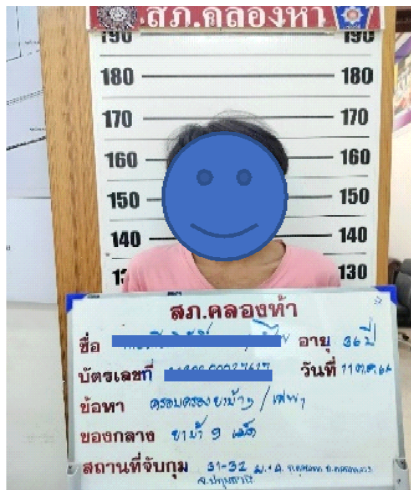 สภ.คลองห้า
190 190
180 180
170 170
160 160
150 150
140 140
13 130
สภ.คลองห้า
ชื่อ อายุ 36 ปี
บัตรเลขที่ วันที่ 11 ต.ค. 66
ข้อหา ครอบครองยาบ้าฯ / เสพฯ
ของกลาง ยาบ้า 9 เม็ด
สถานที่จับกุม 31-32 ม.4
จ.ปทุมธานี